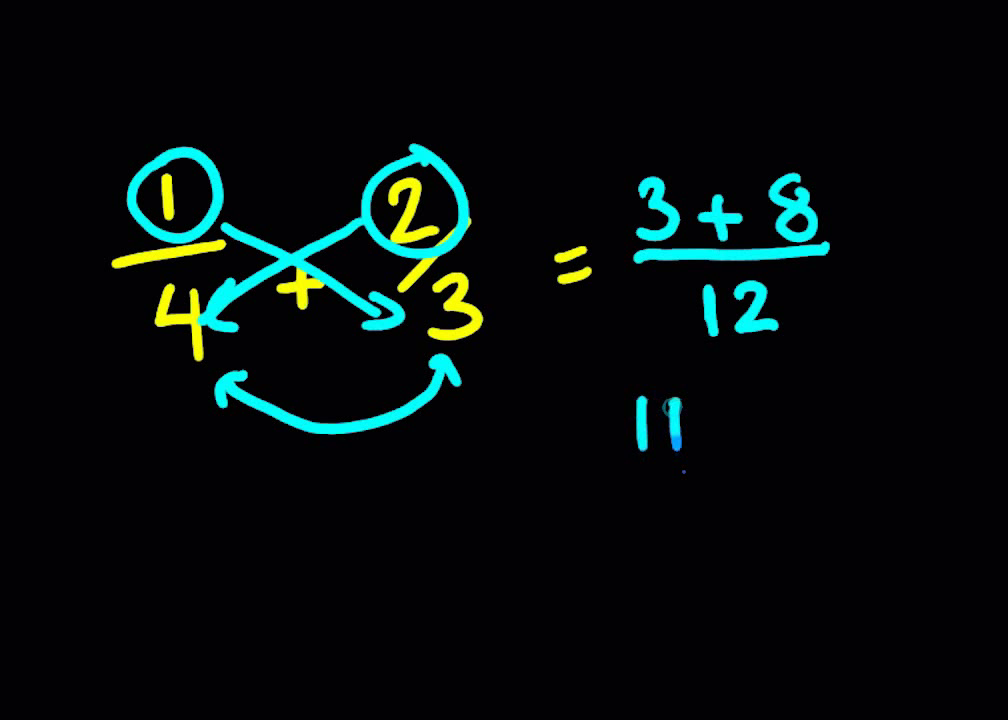 1/4 + 2/3 = (3 + 8)/12
11